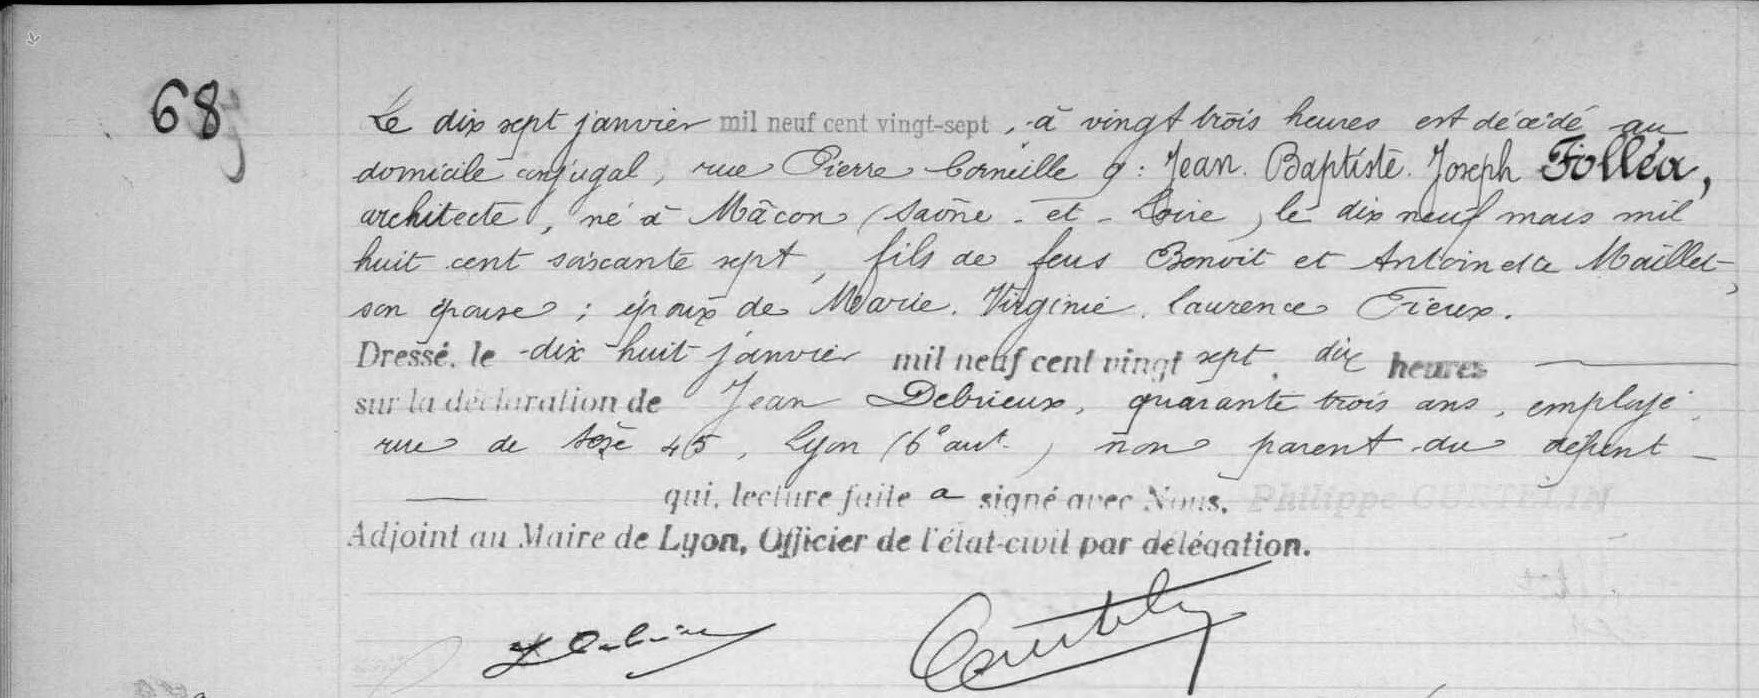 68
Le dix sept janvier mil neuf cent vingt-sept, à vingt trois heures est décédé au
domicile conjugal, rue Pierre Corneille 9 : Jean. Baptiste. Joseph Folléa,
architecte, né à Mâcon (Saône-et-Loire) le dix neuf mars mil
huit cent soixante sept, fils de feus Benoit et Antoinette Maillet
son épouse ; époux de Marie. Virginie. Laurence Fieux.
Dressé, le dix huit janvier mil neuf cent vingt sept, dix heures
sur la déclaration de Jean Debrieux, quarante trois ans, employé
rue de Sèze 45, Lyon (6e arrt.) non parent du défunt
qui, lecture faite a signé avec Nous, Philippe CURTELIN
Adjoint au Maire de Lyon, Officier de l'état-civil par délégation.